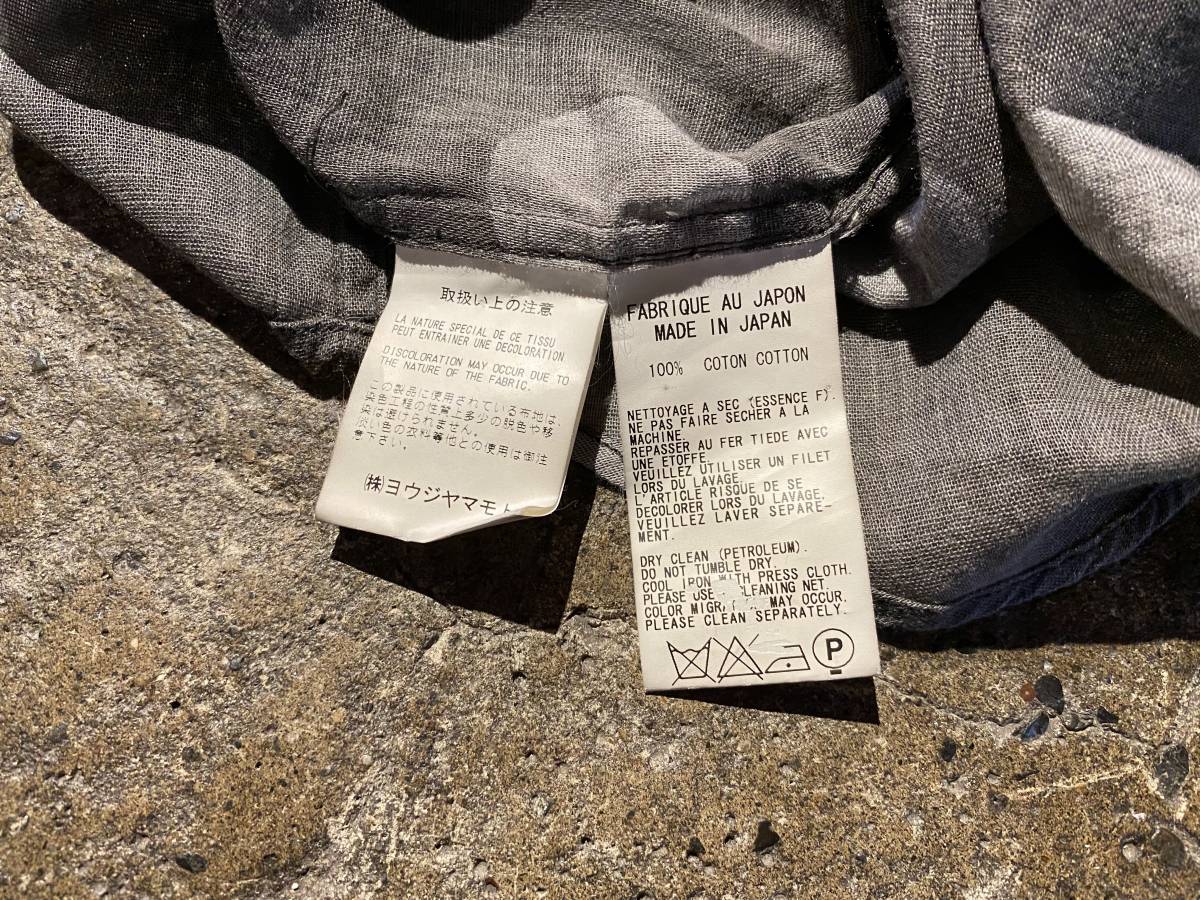 取扱い上の注意
LA NATURE SPECIAL DE CE TISSU
PEUT ENTRAINER UNE DECOLORATION
DISCOLORATION MAY OCCUR DUE TO
THE NATURE OF THE FABRIC.
この製品に使用されている布地は、
染色工程の性質上多少の脱色や移
染は避けられません。
淡い色の衣料等他との使用は御注
意下さい。
㈱ヨウジヤマモト
FABRIQUE AU JAPON
MADE IN JAPAN
100% COTON COTTON
NETTOYAGE A SEC (ESSENCE F).
NE PAS FAIRE SECHER A LA
MACHINE.
REPASSER AU FER TIEDE AVEC
UNE ETOFFE.
VEUILLEZ UTILISER UN FILET
LORS DU LAVAGE.
L'ARTICLE RISQUE DE SE
DECOLORER LORS DU LAVAGE.
VEUILLEZ LAVER SEPARE-
MENT.
DRY CLEAN (PETROLEUM).
DO NOT TUMBLE DRY.
COOL IRON WITH PRESS CLOTH.
PLEASE USE CLEANING NET.
COLOR MAY OCCUR.
PLEASE CLEAN SEPARATELY.
P